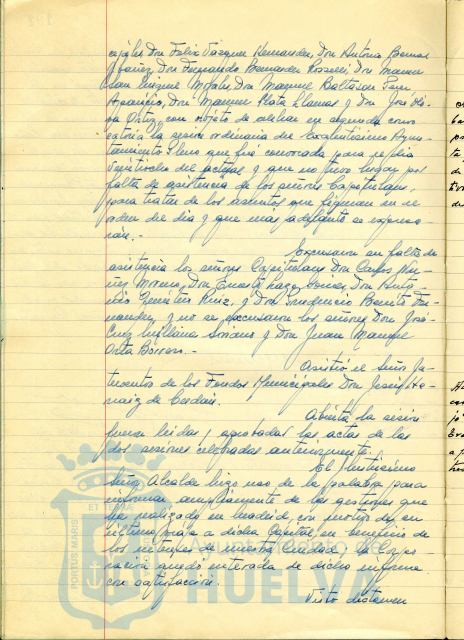 cejales Don Felix Vazquez Hernandez, Don Antonio Bernal
Yañez, Don Fernando Bermudez Rosselli, Don Manuel
San Miguel Mora, Don Manuel Baltasar San
Aparicio, Don Manuel Plata Llamas y Don José
con objeto de celebrar en segunda convo
catoria la sesion ordinaria del Excelentisimo Ayun-
tamiento Pleno que fué convocada para el dia
veintiocho del actual y que no tuvo lugar por
falta de asistencia de los señores Capitulares,
para tratar de los asuntos que figuran en el
orden del dia y que mas adelante se expresa-
rán.-
Excusaron su falta de
asistencia los señores Capitulares Don Carlos
Moreno, Don
Ruiz, y Don Prudencio Benito Fer
nandez, y no se excusaron los señores Don José
Cruz Soriano y Don Juan Manuel
Orta Borrero.-
Asistió el señor In-
terventor de los Fondos Municipales Don Jesús Ar-
naiz de
Abierta la sesion
fueron leidas y aprobadas las actas de las
dos sesiones celebradas anteriormente.
El Ilustrisimo
Señor Alcalde hizo uso de la palabra para
informar ampliamente de las gestiones que
ha realizado en Madrid, con motivo de su
ultimo viaje a dicha Capital, en beneficio de
los intereses de nuestra Ciudad, y la Corpo-
ración quedó enterada de dicho informe
con satisfacción.
Visto dictamen
PORTUS MARIS
ET TERRAE
Ayuntamiento de
HUELVA